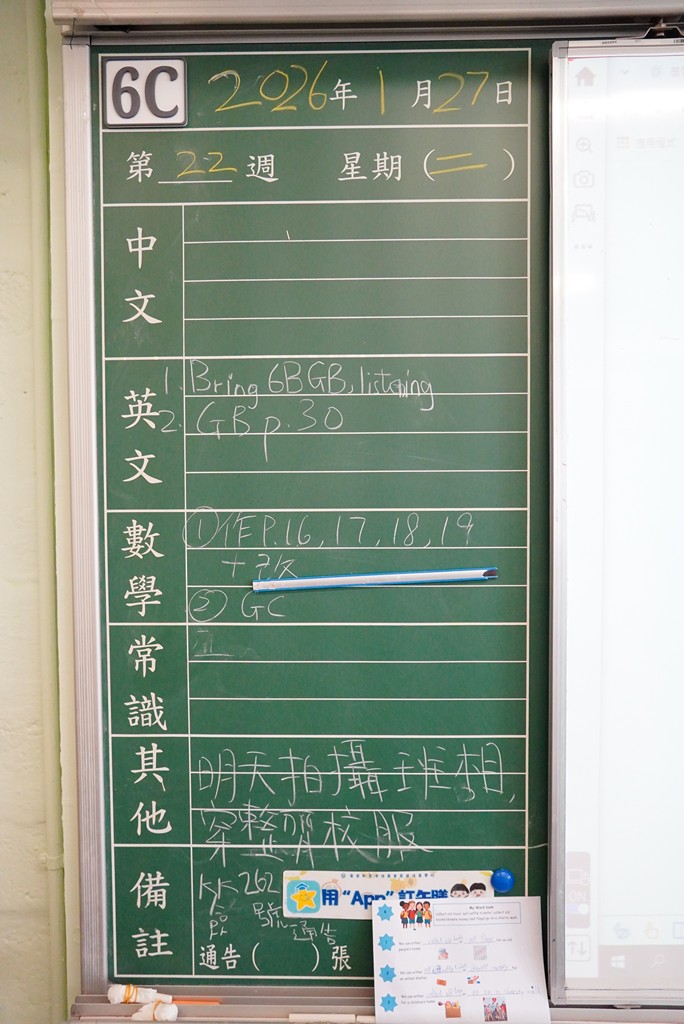 6C 2026年1月27日
第22週 星期(二)
中文
英文
1. Bring 6B GB, listening
2. GB p.30
數學
① 作P.16, 17, 18, 19
+改
② GC
常識
其他
明天拍攝班相,
穿整齊校服
備註
KK262
號通告
用 “App” 訂午膳
通告( )張
My Word Bank